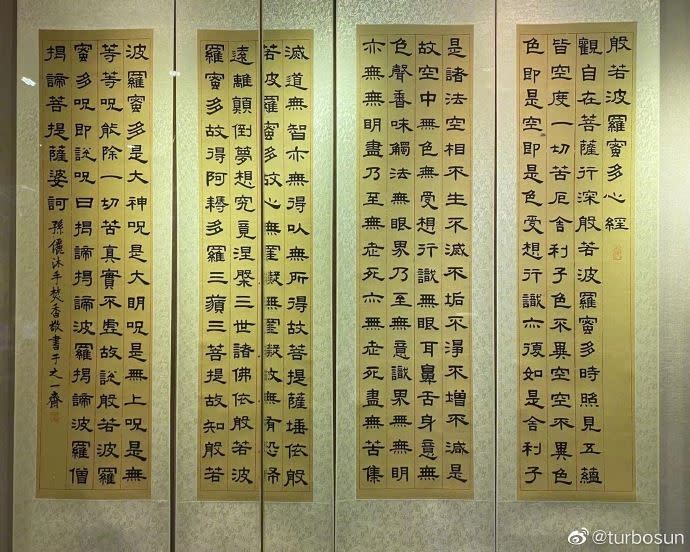 般若波羅蜜多心經
觀自在菩薩行深般若波羅蜜多時照見五蘊
皆空度一切苦厄舍利子色不異空空不異色
色即是空空即是色受想行識亦復如是舍利子
是諸法空相不生不滅不垢不淨不增不減是
故空中無色無受想行識無眼耳鼻舌身意無
色聲香味觸法無眼界乃至無意識界無無明
亦無無明盡乃至無老死亦無老死盡無苦集
滅道無智亦無得以無所得故菩提薩埵依般
若波羅蜜多故心無罣礙無罣礙故無有恐怖
遠離顛倒夢想究竟涅槃三世諸佛依般若波
羅蜜多故得阿耨多羅三藐三菩提故知般若
波羅蜜多是大神呪是大明呪是無上呪是無
等等呪能除一切苦真實不虛故說般若波羅
蜜多呪即說呪曰揭諦揭諦波羅揭諦波羅僧
揭諦菩提薩婆訶 孫儷沐手焚香敬書于之一齋
@turbosun